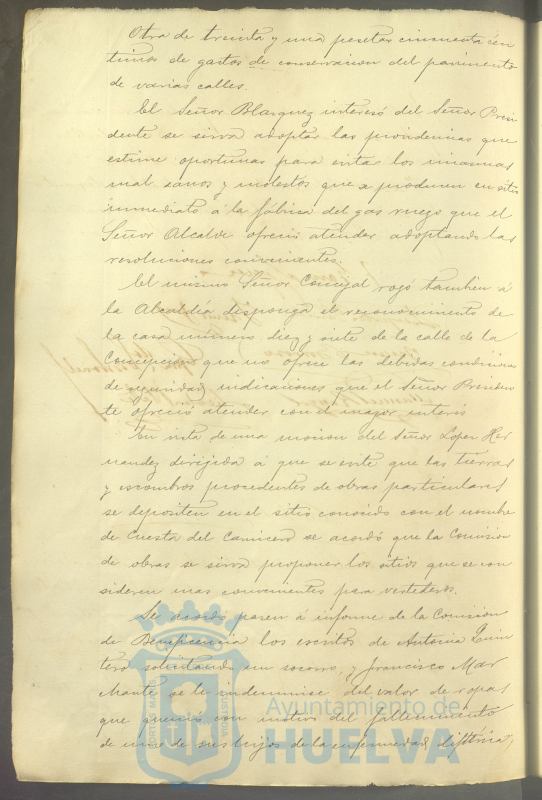 Otra de treinta y una pesetas cincuenta cén
timos de gastos de conservacion del pavimento
de varias calles.
El Señor Blazquez interesó del Señor Presi
dente se sirva adoptar las providencias que
estime oportunas para evitar los miasmas
mal sanos y molestos que se producen en sitio
inmediato á la fábrica del gas ruego que el
Señor Alcalde ofreció atender adoptando las
resoluciones convenientes.
El mismo Señor Concejal rogó tambien á
la Alcaldía disponga el reconocimiento de
la casa número diez y siete de la calle de la
Concepcion que no ofrece las debidas condiciones
de seguridad, indicaciones que el Señor Presiden
te ofreció atender con el mayor interés
En vista de una mocion del Señor Lopez Her
nandez dirijida á que se evite que las tierras
y escombros procedentes de obras particulares
se depositen en el sitio conocido con el nombre
de Cuesta del Carnicero se acordó que la Comision
de obras se sirva proponer los sitios que se con
sideren mas convenientes para vertederos.
Se acordó pasen á informe de la Comision
de Beneficencia los escritos de Antonia Quin
tero solicitando un socorro, y Francisco Mar
 se le indemnice del valor de ropas
que quemó con motivo del fallecimiento
de uno de sus hijos de la enfermedad diftérica,
Ayuntamiento de
HUELVA